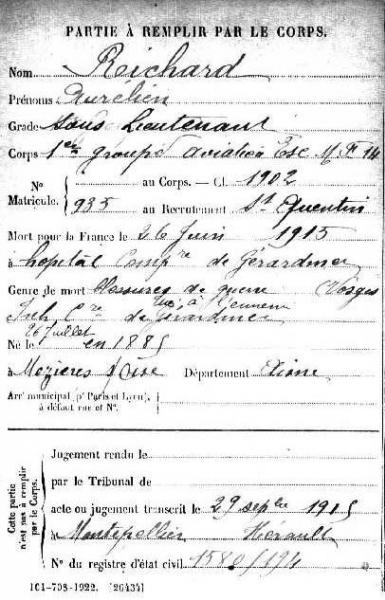 PARTIE À REMPLIR PAR LE CORPS.
Nom Reichard
Prénoms Aurélien
Grade Sous Lieutenant
Corps 1er groupe aviation Esc M.F. 14
N° Matricule. au Corps. — Cl. 1902
935 au Recrutement St Quentin
Mort pour la France le 26 Juin 1915
à hopital Compre de Gérardmer
Genre de mort Blessures de guerre (Vosges
tué à l'ennemi
Inh. Cre de Gérardmer
26 Juillet
Né le en 1885
à Mezières s/Oise Département Aisne
Arrt municipal (pr Paris et Lyon),
à défaut rue et N°.
Cette partie
n'est pas à remplir
par le Corps.
Jugement rendu le
par le Tribunal de
acte ou jugement transcrit le 29 sepbre 1915
à Montpellier Hérault
N° du registre d'état civil 1580/194
101-708-1922. [26434]